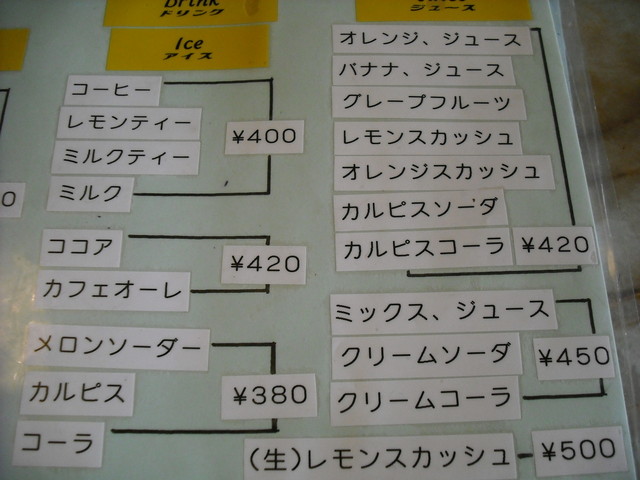 Drink
ドリンク
Ice
アイス
コーヒー
レモンティー
ミルクティー
ミルク
¥400
ココア
カフェオーレ
¥420
メロンソーダー
カルピス
コーラ
¥380
ジュース
オレンジ、ジュース
バナナ、ジュース
グレープフルーツ
レモンスカッシュ
オレンジスカッシュ
カルピスソーダ
カルピスコーラ
¥420
ミックス、ジュース
クリームソーダ
クリームコーラ
¥450
(生)レモンスカッシュ
¥500